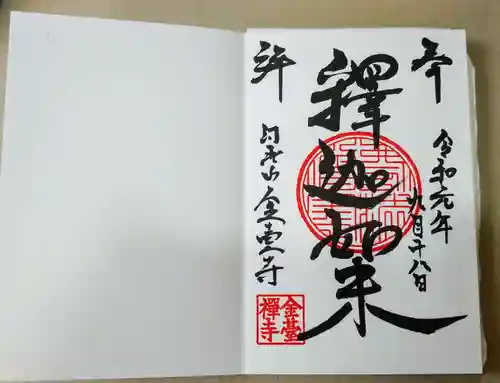 奉
令和元年
九月十八日
釋迦如来
拜
日照山金臺寺
金臺
禪寺